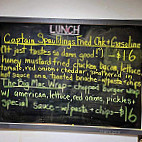 LUNCH
Captain Spauldings Fried Chk + Gasoline
(It just tastes so damn good!) - $16
honey mustard fried chicken, bacon, lettuce,
tomato, red onion + cheddar, smothered in
hot sauce on a toasted brioche + pasta + chips
The Big Mac Wrap - chopped burger wrap
w/ american, lettuce, red onions, pickles +
special sauce - w/ pasta + chips - $16